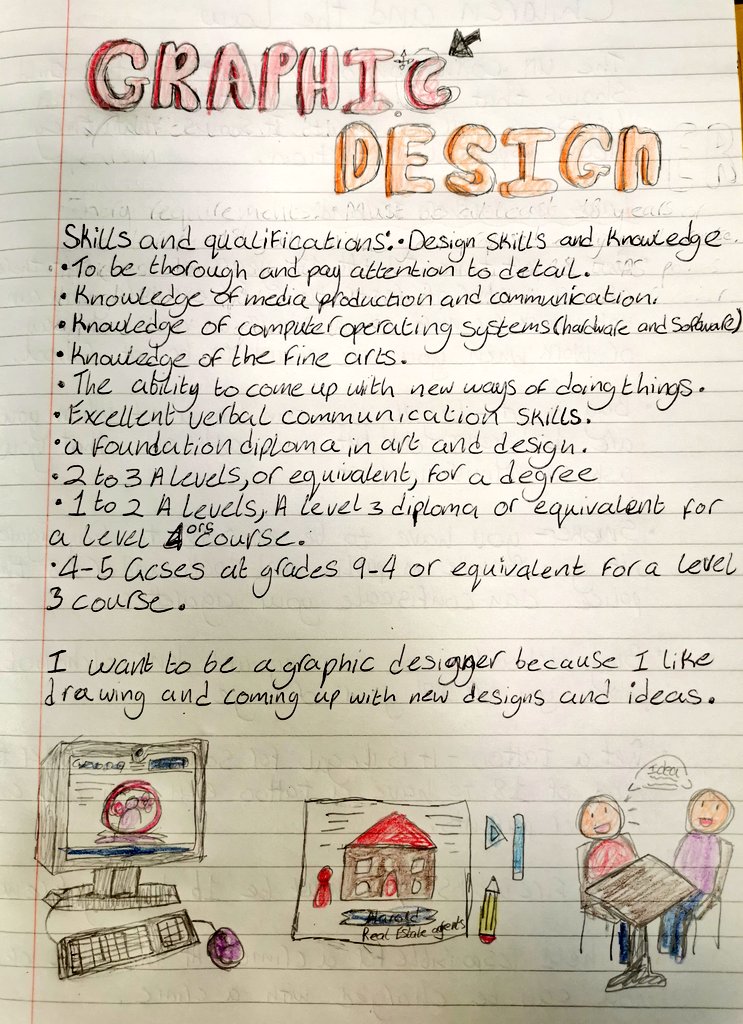 GRAPHIC
DESIGN
Skills and qualifications: • Design Skills and Knowledge
• To be thorough and pay attention to detail.
• Knowledge of media production and communication.
• Knowledge of computer operating systems (hardware and Software)
• Knowledge of the fine arts.
• The ability to come up with new ways of doing things.
• Excellent verbal communication skills.
• a foundation diploma in art and design.
• 2 to 3 A levels, or equivalent, for a degree
• 1 to 2 A levels, A level 3 diploma or equivalent for
a level 4 or 5 course.
• 4-5 Gcses at grades 9-4 or equivalent for a level
3 course.
I want to be a graphic designer because I like
drawing and coming up with new designs and ideas.
Idea
Harold
Real Estate agents